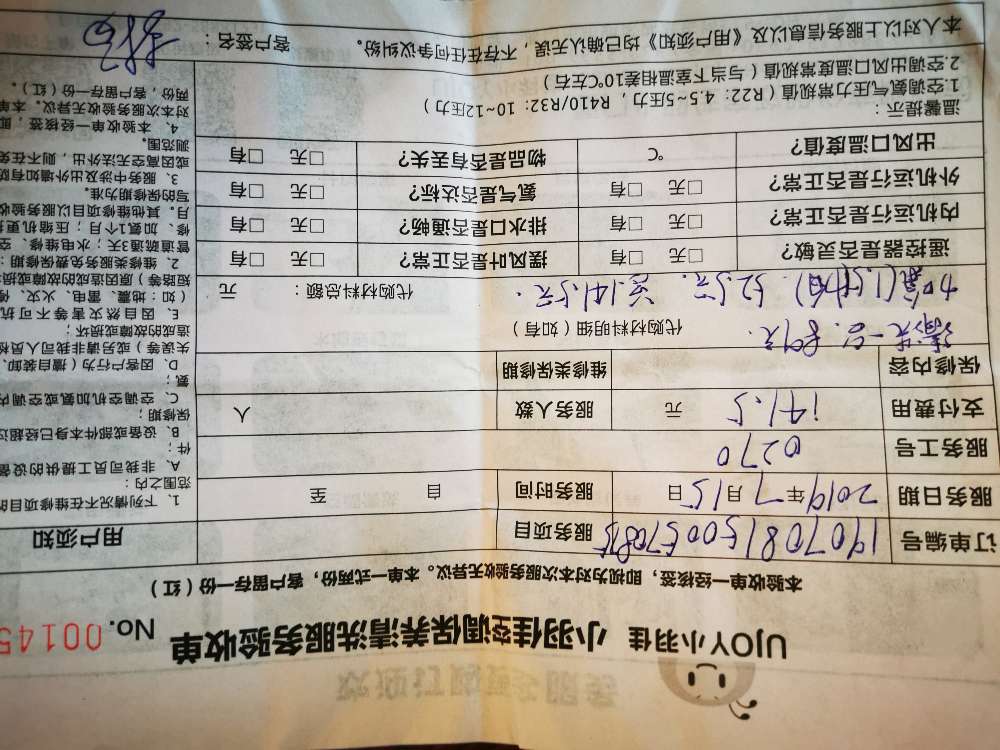 UJOY小羽佳 小羽佳空调保养清洗服务验收单 No. 00145
本验收单一经核签，即视为对本次服务验收无异议。本单一式两份，客户留存一份（红）
订单编号 服务项目 用户须知
服务日期 2019年7月15日 服务时间 自 至
服务工号 0270
支付费用 141.5 元 服务人数 人
保修内容 维修类保修期
清洗一台 89元 代购材料明细（如有）
52.5元 141.5元 代购材料总额： 元
遥控器是否灵敏？ □无 □有 摆风叶是否正常？ □无 □有
内机运行是否正常？ □无 □有 排水口是否通畅？ □无 □有
外机运行是否正常？ □无 □有 氨气是否达标？ □无 □有
出风口温度值？ ℃ 物品是否有丢失？ □无 □有
温馨提示：
1.空调氨气压力常规值（R22：4.5~5压力，R410/R32：10~12压力）
2.空调出风口温度常规值（与当下室温相差10℃左右）
本人对以上服务信息以及《用户须知》均已确认无误，不存在任何争议纠纷。 客户签名：
1、下列情况不在维修项目的
范围之内：
A、非我司员工提供的设备
件；
B、设备或部件本身已经超过
保修期；
C、空调机加氨或空调内
氨；
D、因客户行为（擅自装卸、
失误等）或另请非我司人员检
造成的故障或损坏；
E、因自然灾害等不可抗
（如：地震、雷电、火灾、
短路等）原因造成的故障或损
2、维修类服务免费保修期：
管道疏通3天；水电维修、空
修、加氨1个月；压缩机更
月。其他维修项目以服务验收
写的保修期为准。
3、服务中涉及出外墙如有防
或因高空无法外出，则不在
测范围。
4、本验收单一经核签，即
对本次服务验收无异议。本单
两份，客户留存一份（红）。